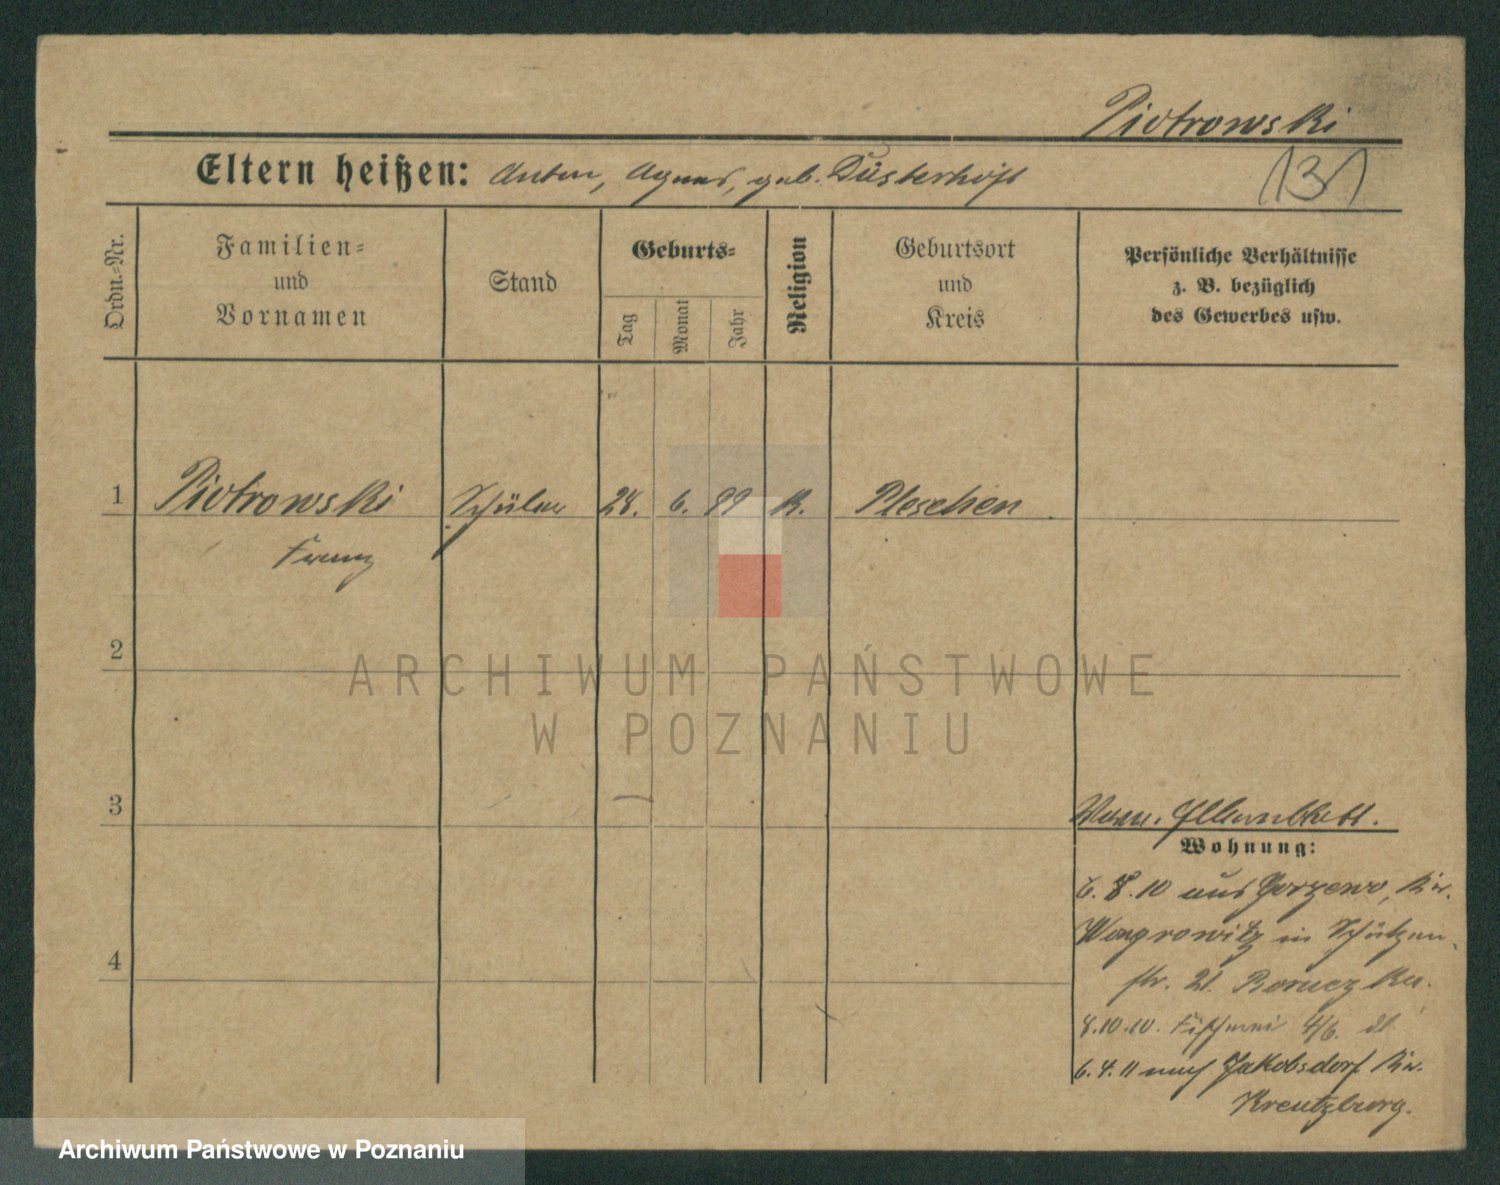 Piotrowski
Eltern heißen: Anton, Agnes, geb. Düsterhöft
131
Ordn.=Nr.
Familien=
und
Vornamen
Stand
Geburts=
Tag
Monat
Jahr
Religion
Geburtsort
und
Kreis
Persönliche Verhältnisse
z. B. bezüglich
des Gewerbes usw.
1 Piotrowski Schüler 28. 6. 99 K. Pleschen
Franz
2
ARCHIWUM PAŃSTWOWE
W POZNANIU
3
Wohnung:
6. 8. 10 aus Gorzewo, Kr.
Wongrowitz in Schützen
4
str. 21.
8.10.10. Fischerei 4/6.
6. 4. 11 nach Jakobsdorf Kr.
Kreutzburg.
Archiwum Państwowe w Poznaniu